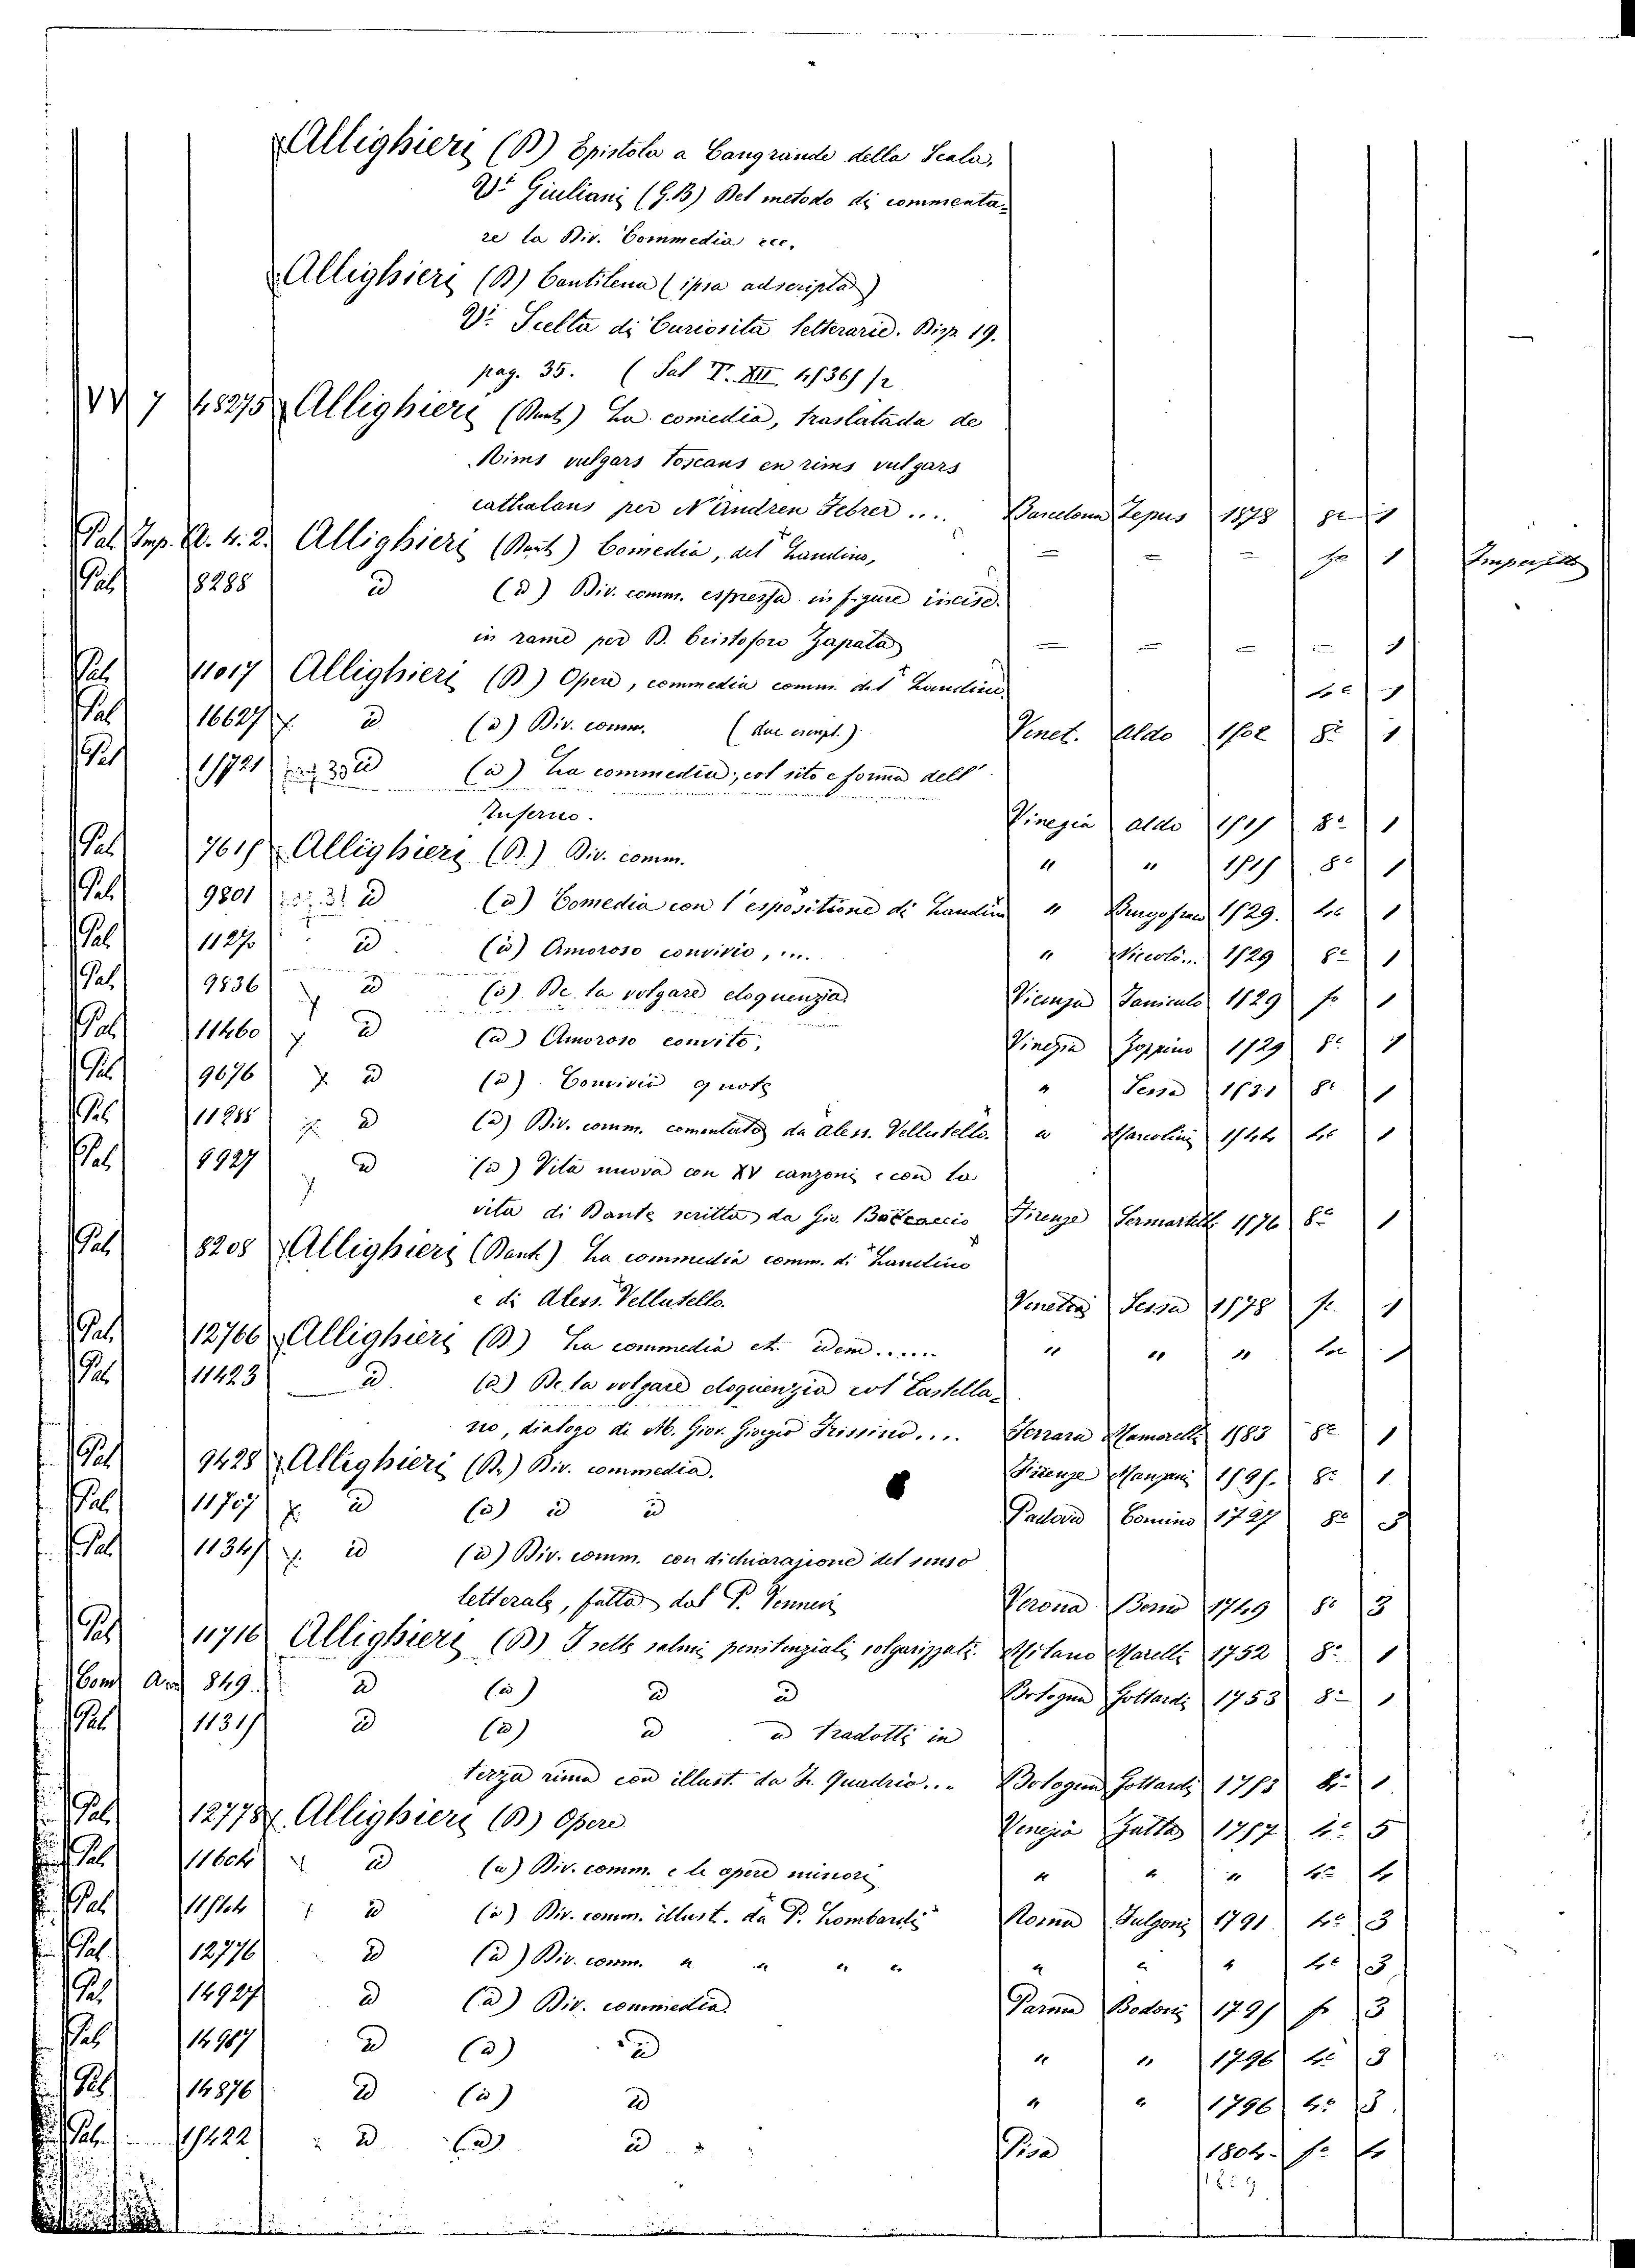 Allighieri (D) Epistola a Cangrande della Scala,
Vi Giuliani (G.B) Del metodo di commenta-
re la Div. Commedia ecc.
Allighieri (D) Cantilena (ipsa adscripta)
Vi Scelta di Curiosita letterarie. Disp 19.
pag. 35. ( Sal V. XII
VV 7 48275 Allighieri (Dante) La comedia, traslatada de
Rims vulgars Toscans en rims vulgars
cathalans per N'Andreu Febrer .... Barcelona Tepus 1878 8° 1
Pal Imp. A. 4. 2. Allighieri (Dante) Comedia, del Landino, — — — fo 1 Imperfetto
Pal 8288 id (id) Div. comm. espressa in figure incise.
in rame per D. Cristoforo Zapata — — — — 1
Pal 11017 Allighieri (D.) Opere, commedia comm. del Landino 4° 1
Pal 16627 id (id) Div. comm. (due esempl.) Venet. Aldo 1502 8° 1
Pal 15721 id (id) La commedia, col sito e forma dell'
Inferno. Vinegia Aldo 1515 8° 1
Pal 7615 Allighieri (D.) Div. comm. " " 1515 8° 1
Pal 9801 id (id) Comedia con l'espositione di Landino " 1529. 4° 1
Pal 1127 id (id) Amoroso convivio, .... " Niccolò... 1529 8° 1
Pal 9836 id (id) De la volgare eloquenzia Vicenza Janiculo 1529 fo 1
Pal 11460 id (id) Amoroso convito, Vinegia Zoppino 1529 8° 1
Pal 9676 id (id) Convivio " Sessa 1531 8° 1
Pal 11988 id (id) Div. comm. comentata da Aless. Vellutello. " Marcolini 1544 4° 1
Pal 8927 id (id) Vita nuova con XV canzoni e con la
vita di Dante scritta da Gio. Boccaccio Firenze Sermartelli 1576 8° 1
Pal 8208 Allighieri (Dante) La commedia comm. di Landino
e di Aless. Vellutello. Venetia Sessa 1578 fo. 1
Pal 12766 Allighieri (D) La commedia etc. idem...... " " " 1
Pal 11423 id. (id.) De la volgare eloquenzia col Castella-
no, dialogo di M. Giov. Giorgio Trissino.... Ferrara Mamarelli 1583 8° 1
Pal 9428 Allighieri (D.) Div. commedia. Firenze Manzani 1595. 8° 1
Pal 11707 id (id) id id Padova Comino 1727 8° 3
Pal 11345 id (id) Div. comm. con dichiarazione del senso
letterale, fatta dal P. Venneri Verona Berno 1749 8° 3
Pal 11716 Allighieri (D) I sette salmi penitenziali volgarizzati. Milano Marelli 1752 8° 1
Com Arr 849. id (id) id id Bologna Gottardi 1753 8° 1
Pal 11315 id (id) id id tradotti in
terza rima con illust. da Fr. Quadrio... Bologna Gottardi 1753 1
Pal 12778 Allighieri (D) Opere Venezia Zatta 1757 4° 5
Pal 11604 id (id) Div. comm. e le opere minori " " " 4° 4
Pal 11564 id (id) Div. comm. illust. da P. Lombardi Roma Fulgoni 1791 4° 3
Pal 12776 id (id) Div. comm. " " " " " " " 4° 3
Pal 14927 id (id) Div. commedia. Parma Bodoni 1795 fo 3
Pal 14987 id (id) id " " 1796 4° 3
Pal 14876 id (id) id " " 1796 4° 3
Pal. 15422 id (id) id Pisa 1804. fo 4